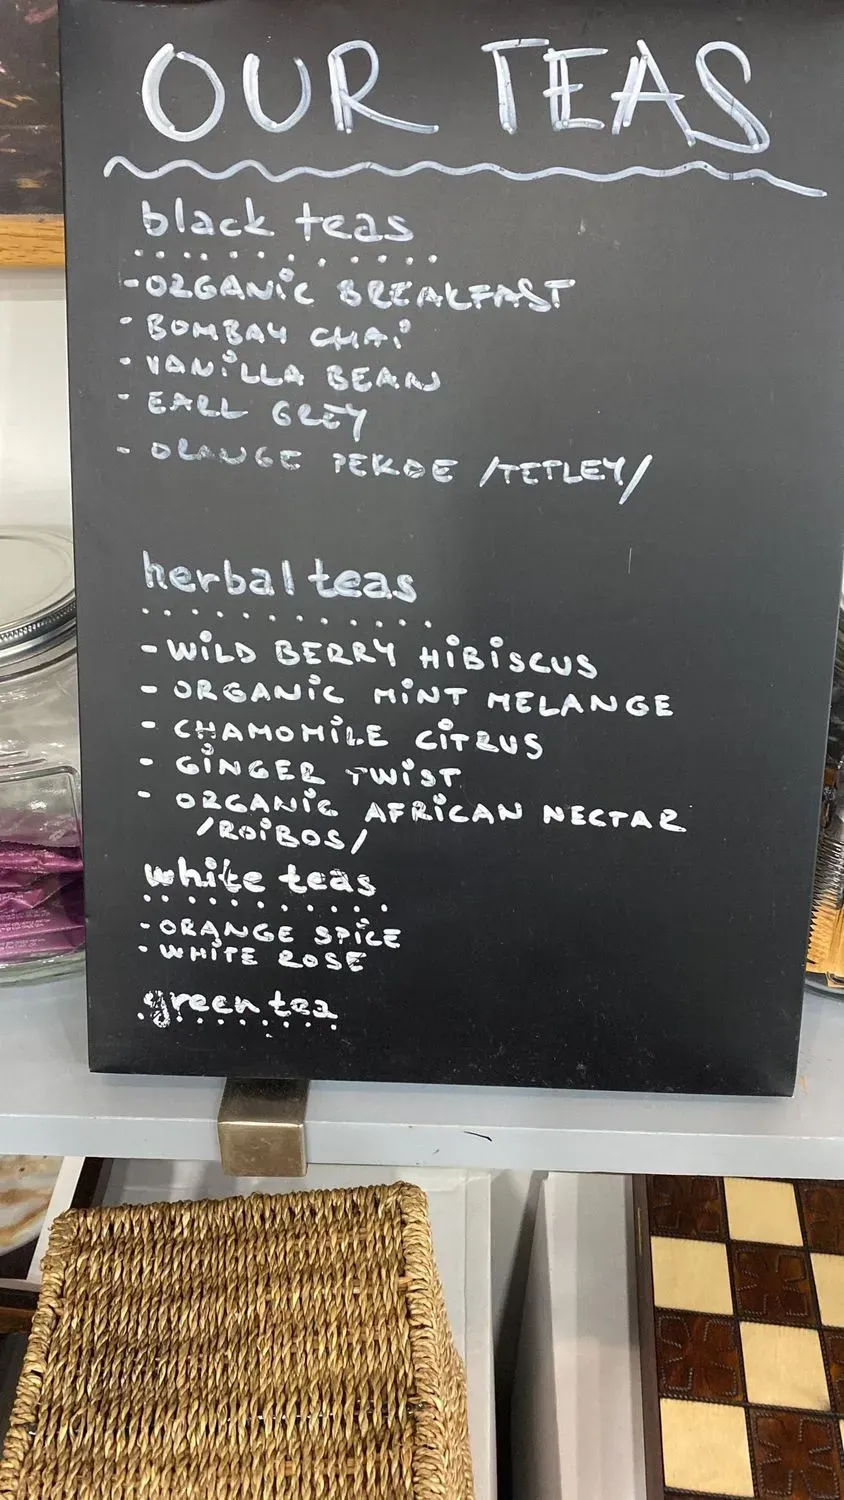 OUR TEAS
black teas
- ORGANIC BREAKFAST
- BOMBAY CHAI
- VANILLA BEAN
- EARL GREY
- ORANGE PEKOE /TETLEY/
herbal teas
- WILD BERRY HIBISCUS
- ORGANIC MINT MELANGE
- CHAMOMILE CITRUS
- GINGER TWIST
- ORGANIC AFRICAN NECTAR
/ROIBOS/
white teas
- ORANGE SPICE
- WHITE ROSE
green tea